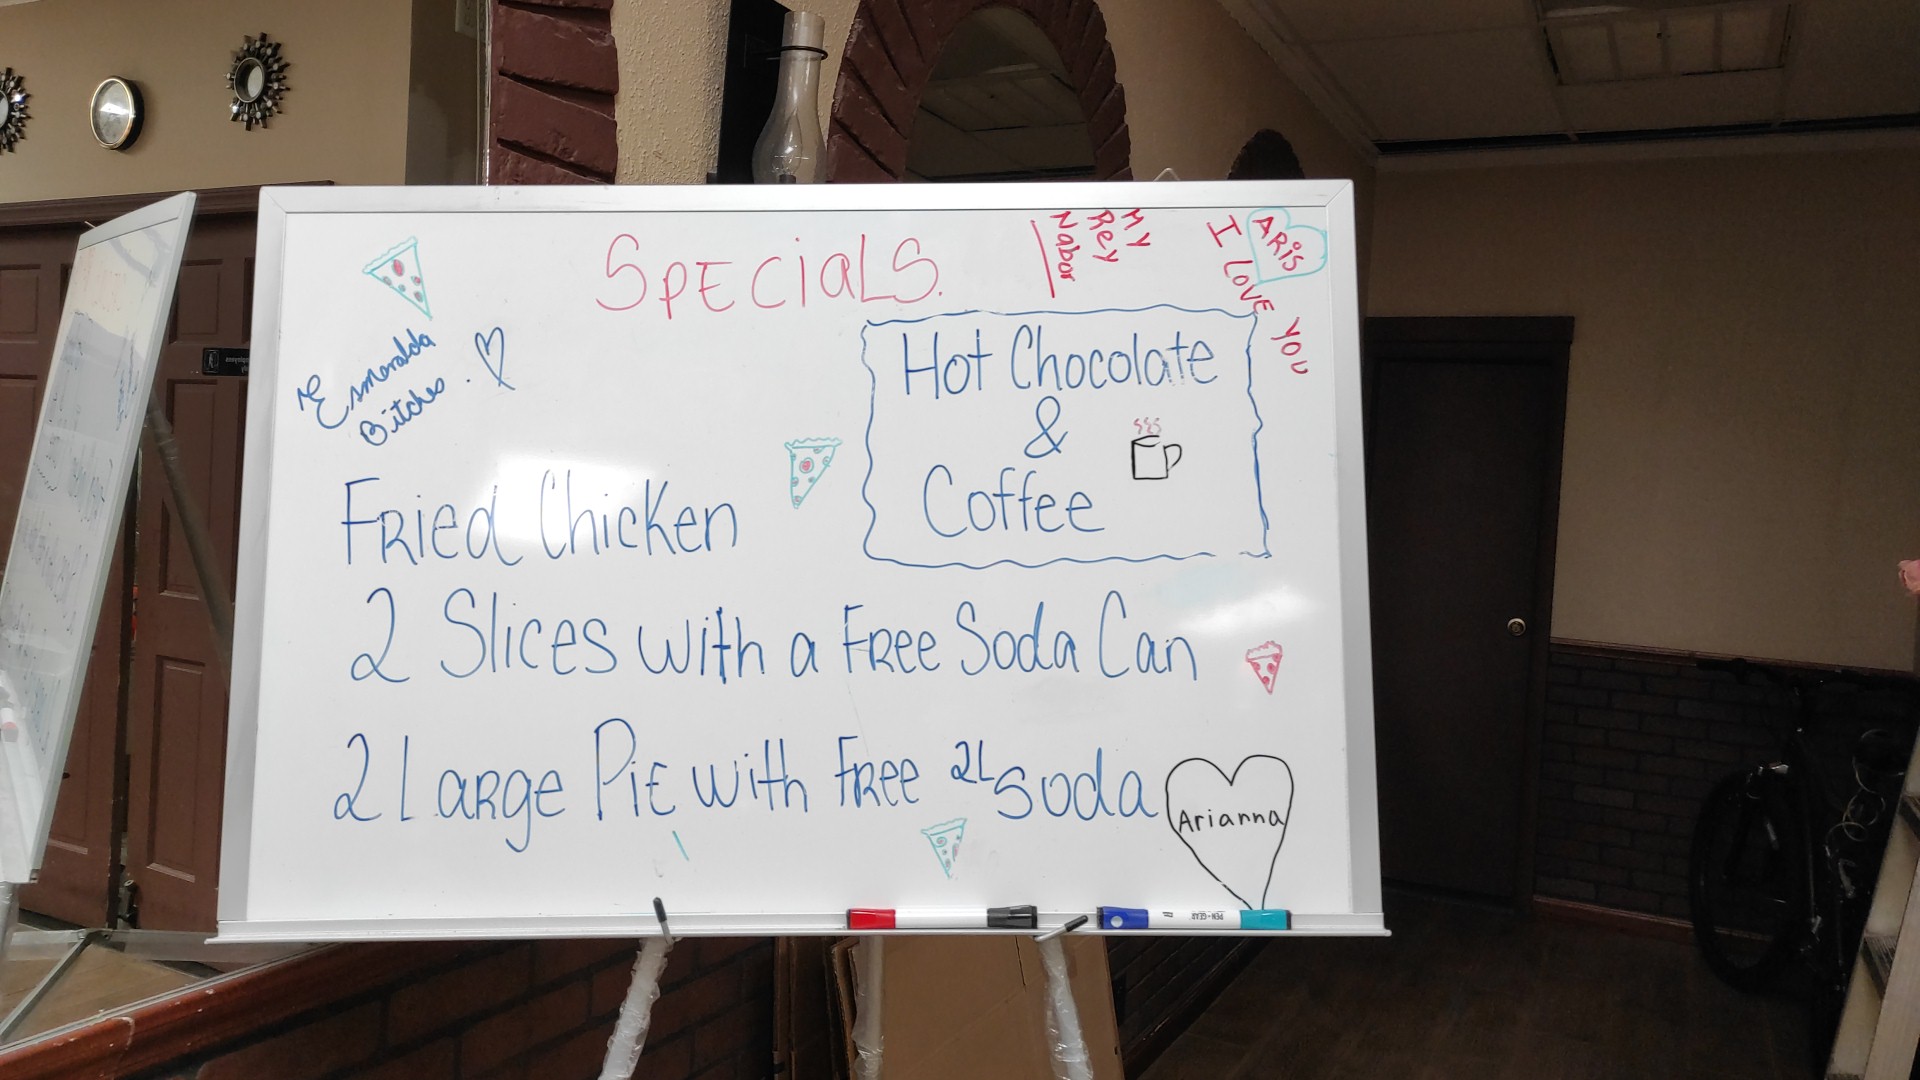 SPECiaLS.
My
Rey
Nabor
ARiS
I LOVE YOU
Esmeralda
Bitches.
Hot Chocolate
&
Coffee
FRied Chicken
2 Slices with a FRee Soda Can
2 Large PiE with FRee 2L Soda
Arianna
PEN+GEAR